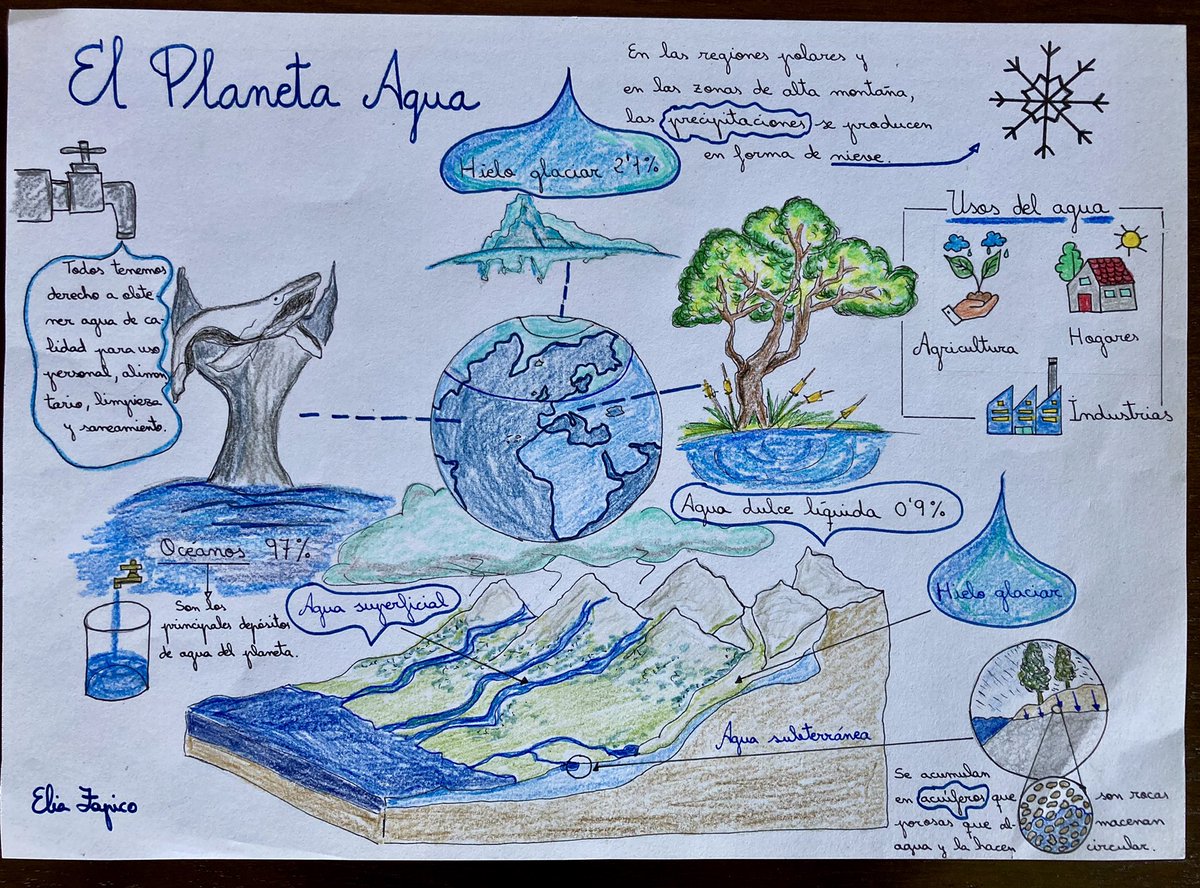 El Planeta Agua
En las regiones polares y
en las zonas de alta montaña,
las precipitaciones se producen
en forma de nieve.
Hielo glaciar 2'1%
Usos del agua
Agricultura
Hogares
Industrias
Todos tenemos
derecho a obte
ner agua de ca-
lidad para uso
personal, alimen
tario, limpieza
y saneamiento.
Agua dulce líquida 0'9%
Océanos 97%
Son los
principales depósitos
de agua del planeta.
Agua superficial
Hielo glaciar
Agua subterránea
Se acumulan
en acuíferos que son rocas
porosas que al- macenan
agua y la hacen circular.
Elia